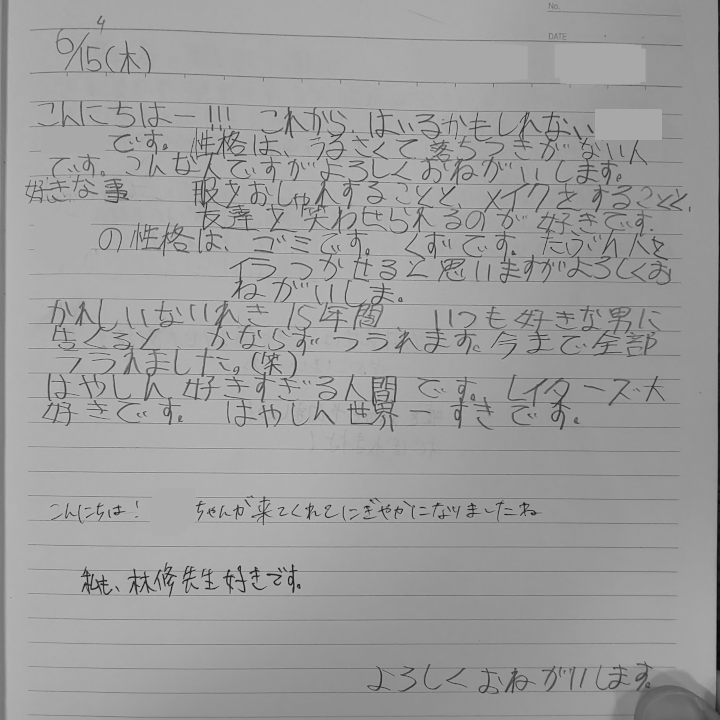 No.
DATE
4
6/15(木)
こんにちはー!!! これから、はいるかもしれない
です。性格は、うるさくて落ちつきがない人
です。こんな人ですがよろしくおねがいします。
好きな事 服をおしゃれすることと、メイクをすることと、
友達を笑わせられるのが好きです。
の性格は、ゴミです。くずです。たぶん人を
イラつかせると思いますがよろしくお
ねがいしま。
かれしいないれき 15年間、いつも好きな男に
告くると かならずフラれます。今まで全部
フラれました。(笑)
はやしん好きすぎる人間です。レイターズ大
好きです。はやしん世界一すきです。
こんにちは! ちゃんが来てくれてにぎやかになりましたね
私も、林修先生好きです。
よろしくおねがいします。